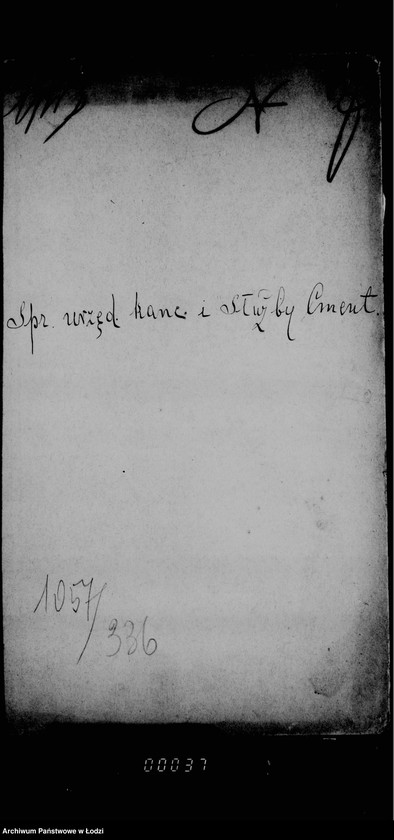 N 9
Spr. urzęd. kanc. i Służby Cment.
1057/
336
00037
Archiwum Państwowe w Łodzi